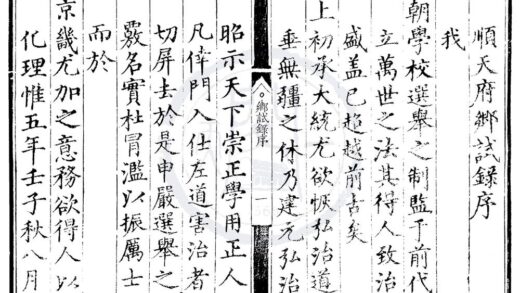 順天府鄉試録序
我
朝學校選舉之制監于前代
立萬世之法其得人致治
盛盖已超越前古矣
上初承大統尤欲恢弘治道
垂無疆之休乃建元弘治
鄉試録序
一
昭示天下崇正學用正人
凡倖門入仕左道害治者
切屏去於是申嚴選舉之
覈名實杜冒濫以振厲士
而於
京畿尤加之意務欲得人以
化理惟五年壬子秋八月